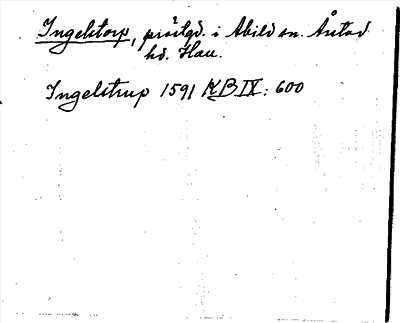 Ingelstorp, prästgd. i Abild sn. Årstad
hd. Hall.
Ingelstrup 1591 KB IX: 600